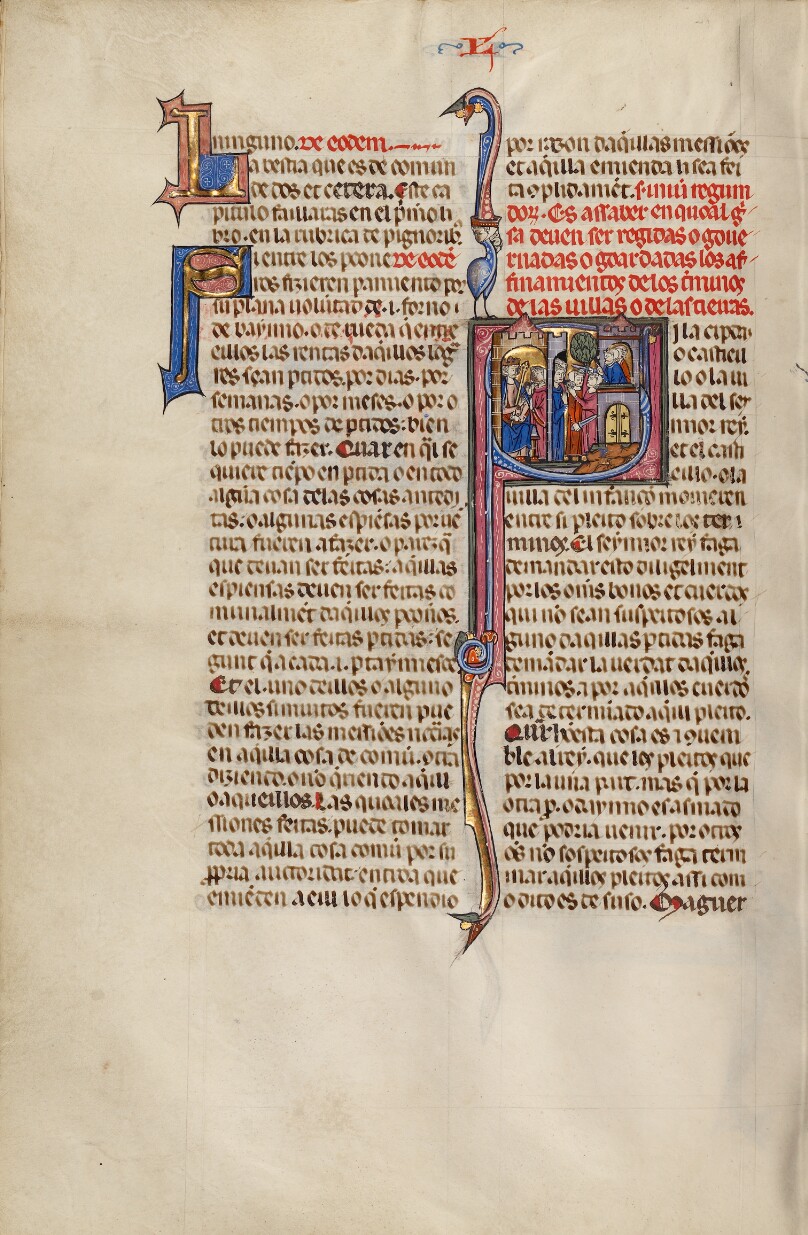 L
ninguno. De eodem.
La bestia que es de comun
de dos et cetera. Este ca
pitulo faillaras en el pͥmo li
bro. en la rubrica de pignoribꝰ.
Si entre los peone De eodē
ros fizieren paramiento por
su plana uoluntad de .i. forno
de baynno. o de
eillos las rentas daquillos
res sean ptidos. por dias. por
semanas. o por meses. o por o
tros tiempos de ptidos. bien
lo puede fazer. Quar en q̄l se
quiere tiēpo en ptida o en todo
alguna cosa delas cosas antedi
tas. o algunas espiesas por uē
tura fueren a fazer. o parezq̄
que deuan ser feitas. aquillas
espiensas deuen ser feitas co
munalmēt daquillos peonos.
et deuen ser feitas ptidas. se
gunt q̄ a cada .i.
Et el .uno deillos o alguno
deillos simuitos fueren pue
den fazer las messiones
en aquilla cosa de comū. otra
diziendo. o no q̄riendo aquill
o aqueillos. Las quoales me
ssiones feitas. puede tomar
toda aquilla cosa comū por su
ꝓpria auctoridat. entroa que
emienden a eill lo q̄ espendio
por razon daquillas messiões
et aquilla emienda li sea fei
ta ꝯplidamēt. finiū regun
dorꝝ. Es assaber en quoal gͥ
sa deuen ser regidas o goue
rnadas o goardadas los af
finamientos de los t̄minos
de las uillas o de las tierras.
Si la ciper
o castieill
lo o la ui
lla del se
innor rey.
et el casti
eillo. o la
uilla del infançō mouieren
entre si pleito sobre los ter
minos. El seynnor rey faga
demandar esto diligelment
por los om̄s bonos et cuerdos
qui no sean suspeitosos. al
guno daquillas ptidas faga
demādar la uerdat daquillos
t̄minos. a por aquillos cuerdos
sea determiado aquill pleito.
Quar desta cosa es ꝯuem
ble al rey. que los pleitos que
por la una part. mas q̄ por la
otra p. o daynno es asmado
que podria uenir. por otros
oēs no sospeitosos faga term
inar aquillos pleitos assi com
o dito es de suso. Maguer